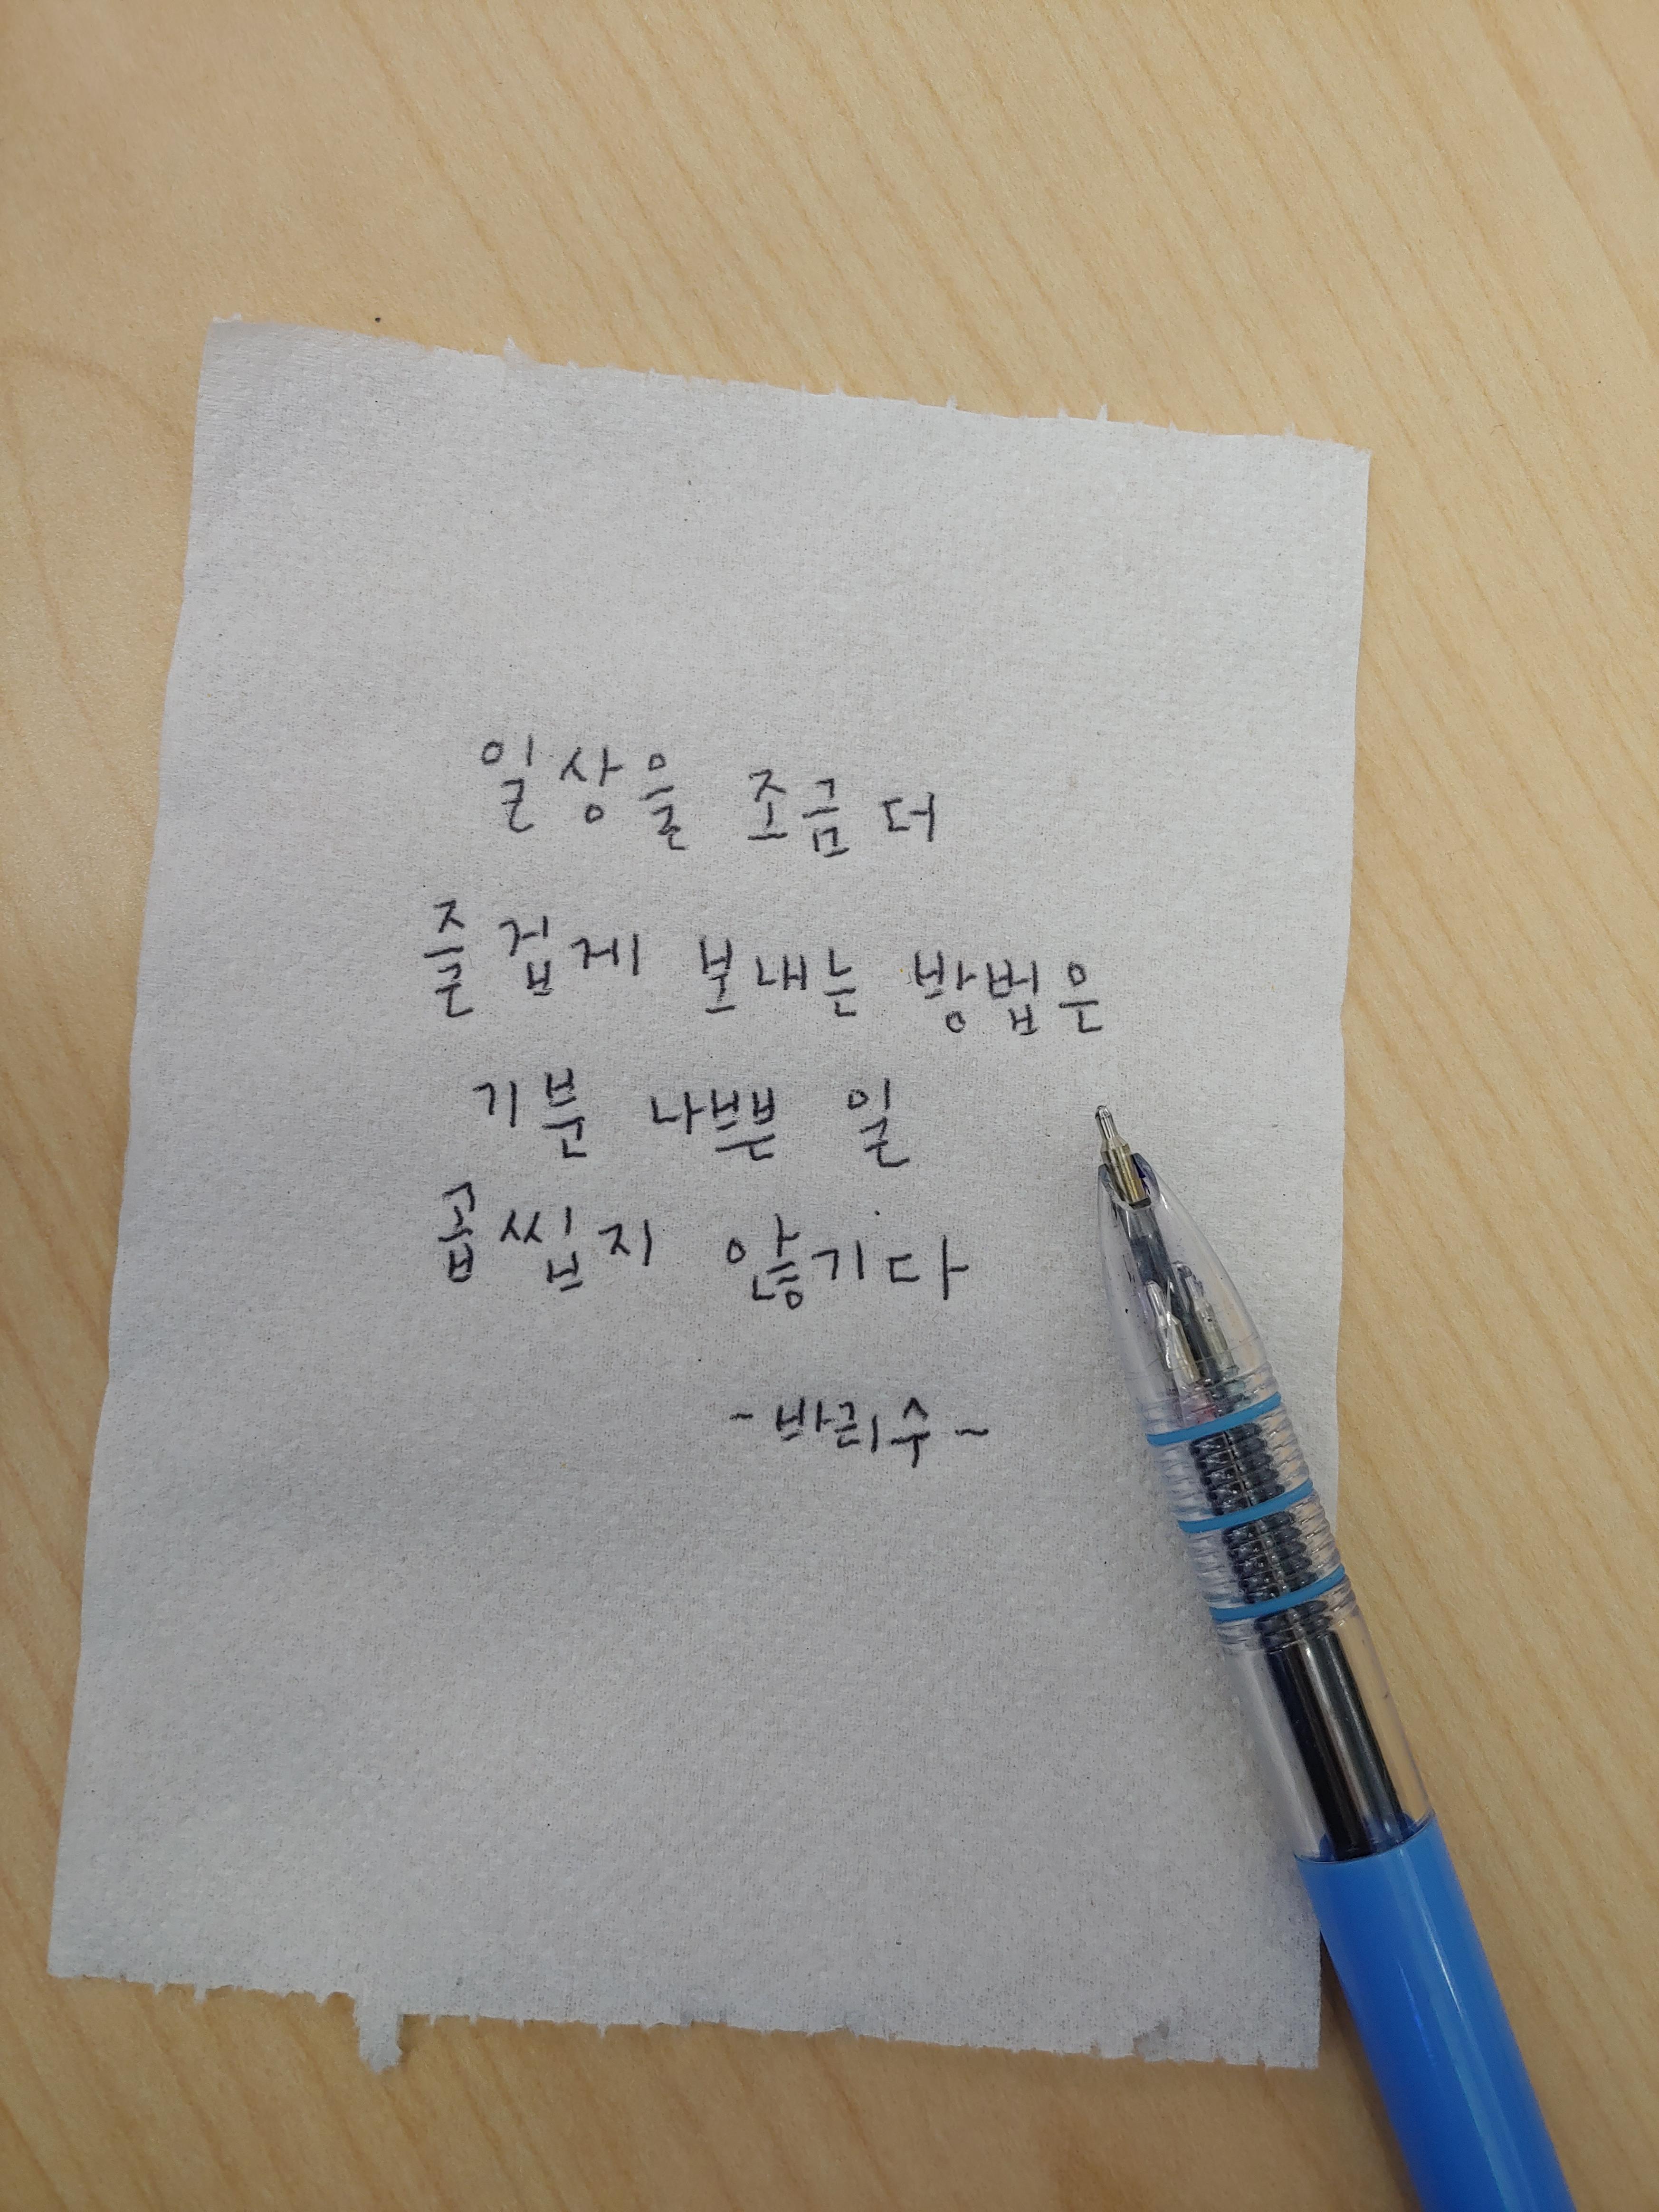 일상을 조금 더
즐겁게 보내는 방법은
기분 나쁜 일
곱씹지 않기다
~바리수~